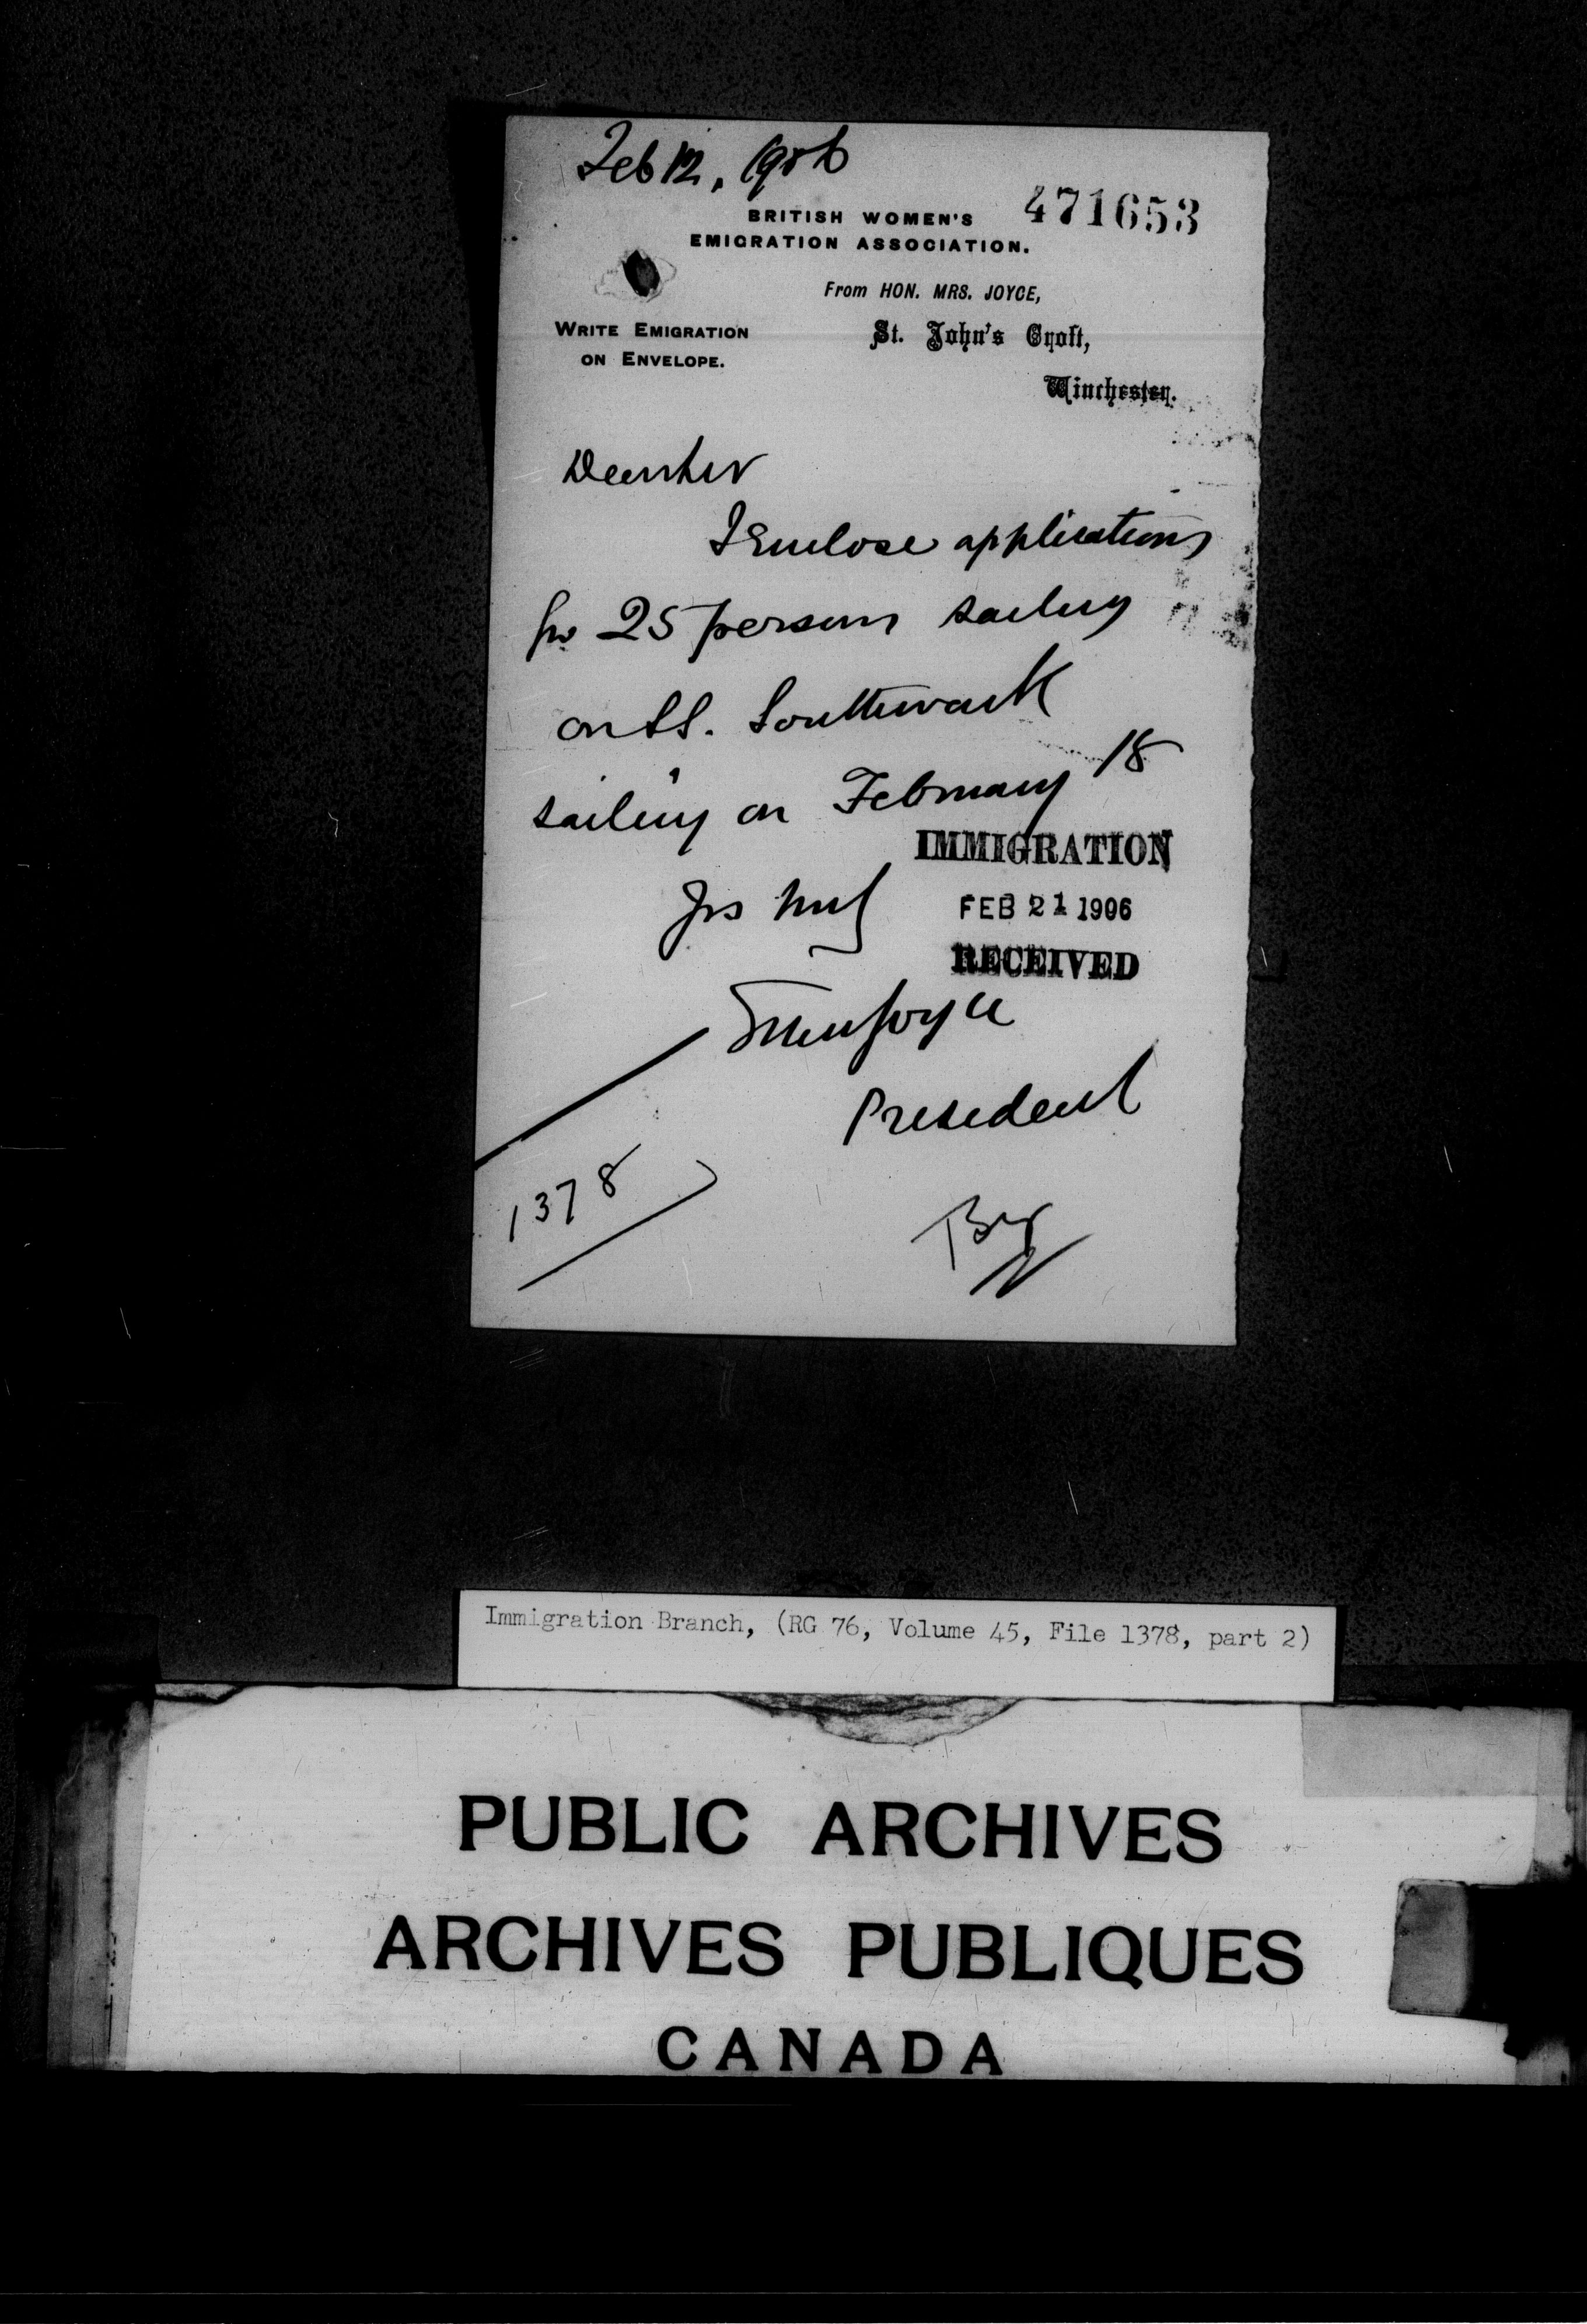 Feb 12, 1906
471653
BRITISH WOMEN'S
EMIGRATION ASSOCIATION.
From HON. MRS. JOYCE,
WRITE EMIGRATION
ON ENVELOPE.
St. John's Croft,
Winchester.
Dear Sir
I Enclose applications
for 25 persons sailing
on SS. Southwark
sailing on February 18
IMMIGRATION
FEB 21 1906
RECEIVED
Yrs truly
Ellen Joyce
President
1378
Immigration Branch, (RG 76, Volume 45, File 1378, part 2)
PUBLIC ARCHIVES
ARCHIVES PUBLIQUES
CANADA